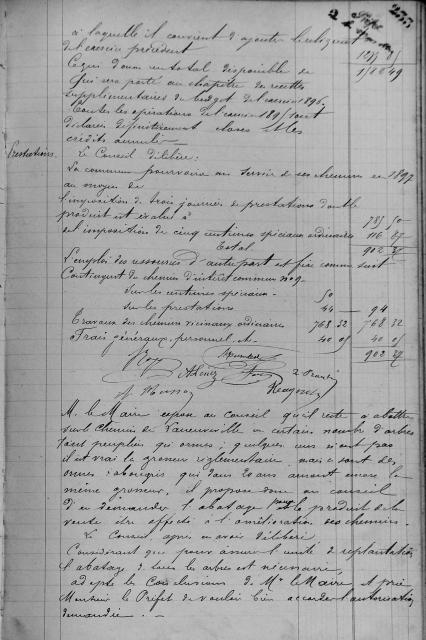 255
à laquelle il convient d'ajouter l'excédent
de l'exercice précédent
Ce qui donne un total disponible de
qui sera porté au chapitre des recettes
supplémentaires du budget de l'exercice 1896.
Toutes les opérations de l'exercice 1895 sont
déclarées définitivement closes et les
crédits annulés
Prestations.
Le Conseil délibère:
La commune pourvoira au service de ses chemins en 1897
au moyen de
L'imposition de trois journées de prestations dont le
produit est évalué à 785 50
et imposition de cinq centimes spéciaux ordinaires 116 87
Total 902 37
L'emploi des ressources d'autre part est fixé comme suit
Contingent de chemins d'intérêt commun no 9
Sur les centimes spéciaux 50
Sur les prestations 44 94
Travaux des chemins vicinaux ordinaires 768 32 768 32
Frais généraux, personnel, etc. 40 05 40 05
902 37
M. le Maire expose au conseil qu'il reste à abattre
sur le chemin de un certain nombre d'arbres
tant peupliers qu'ormes; quelques uns n'ont pas
il est vrai la grosseur réglementaire, mais ce sont des
ormes rabougris qui dans 20 ans auront encore la
même grosseur. Il propose donc au conseil
d'en demander l'abatage pour le produit de la
vente être affecté à l'amélioration des chemins.
Le Conseil, après en avoir délibéré
Considérant que pour assurer l'unité de replantation
l'abatage de tous les arbres est nécessaire,
adopte les Conclusions de Mr le Maire et prie
Monsieur le Préfet de vouloir bien accorder l'autorisation
demandée.